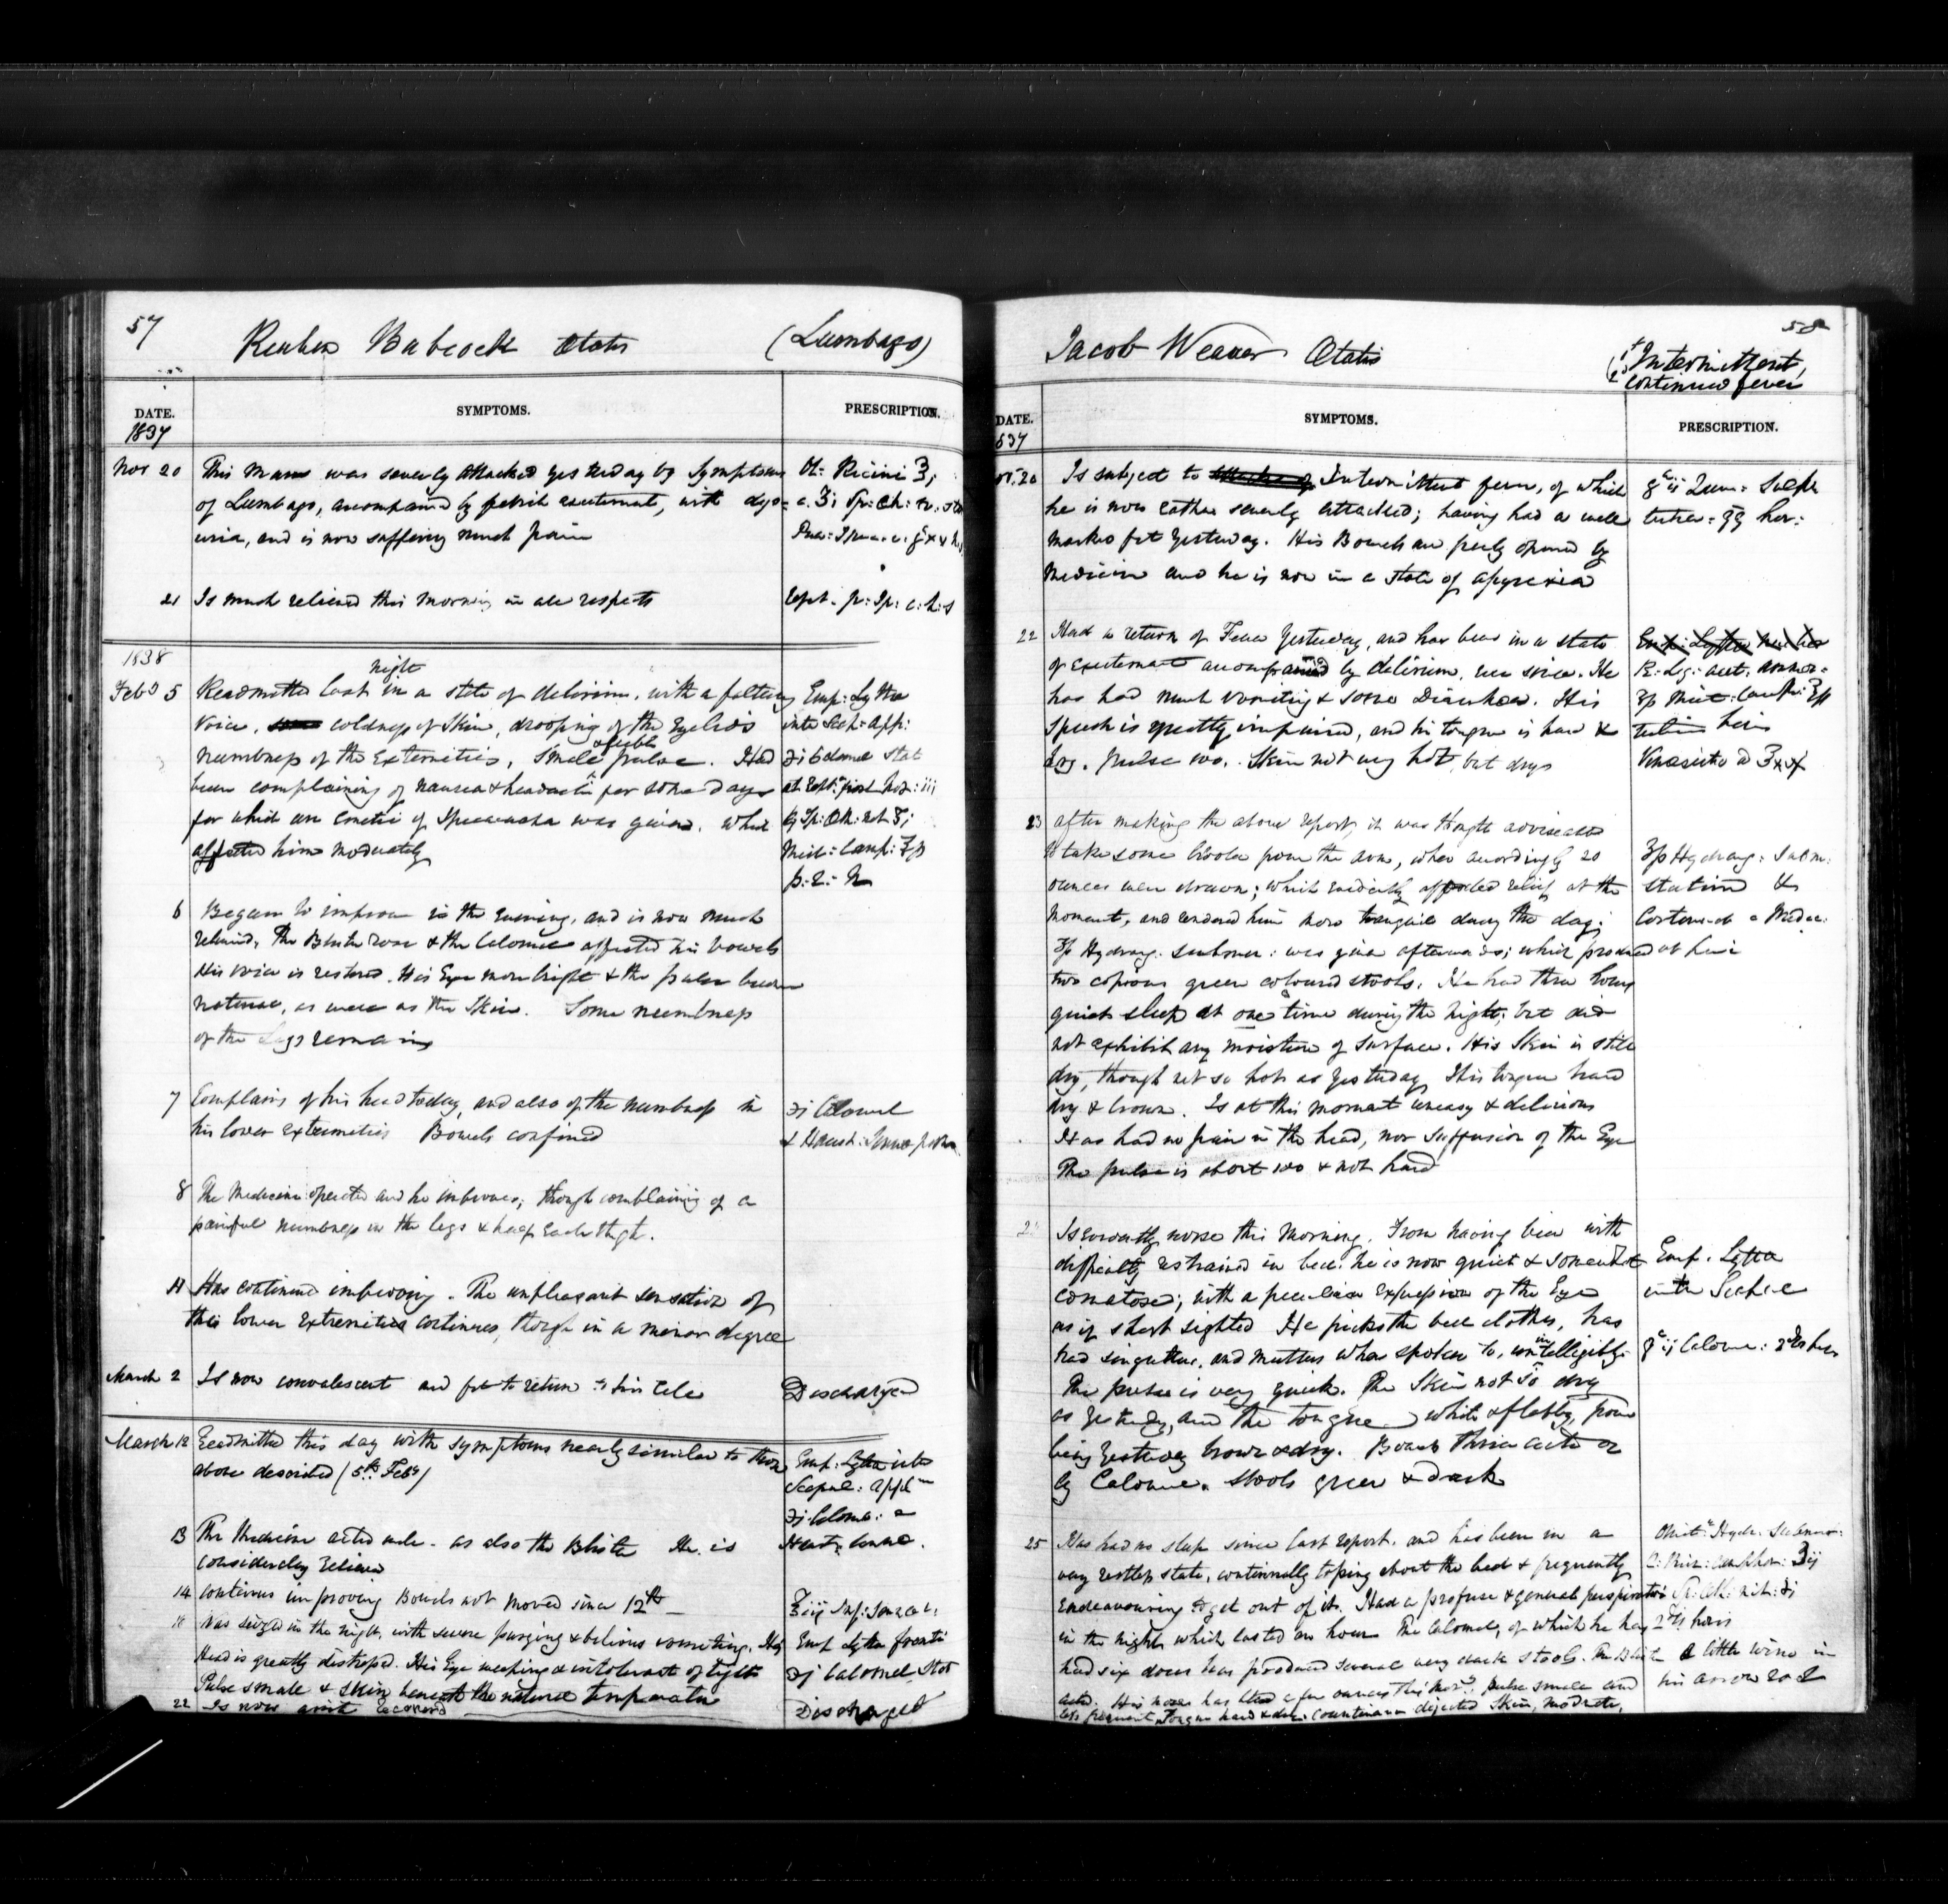 57
Reuben Babcock Ætatis (Lumbago)
DATE. SYMPTOMS. PRESCRIPTION.
1837
Nov 20 This Man was severely attacked yesterday by symptoms Ol: Ricini ℥i
of Lumbago, accompanied by febrile excitement, with dys=
uria, and is now suffering much pain
21 Is much relieved this morning in all respects Rept. p: Ip: c: h: s
1838
night
Feby 5 Readmitted last in a state of delirium, with a faltering Emp: Lyttæ
voice, coldness of Skin, drooping of the Eyelids inter Scap: app:
& feeble
numbness of the Extremities, Small pulse. Had ℈i Calomel Stat
been complaining of nausea & headache for some days
for which an Emetic of Ipecacuanha was given. which
affected him moderately Mist: Camp:
6 Began to improve in the evening, and is now much
relieved, the Blister rose & the Calomel affected his bowels
His voice is restored. His Eye more bright & the pulse
natural, as well as the Skin. Some numbness
of the Legs remains
7 Complains of his head today, and also of the numbness in ℈i Calomel
his lower extremities Bowels confined & Haust: Sennæ
8 The Medicine operated and he improves; though complaining of a
painful numbness in the legs & half each thigh.
11 Has continued improving. The unpleasant sensation of
the lower extremities continues, though in a minor degree
March 2 Is now convalescent and fit to return to his Cell Discharged
March 12 Readmitted this day with symptoms nearly similar to those Emp: Lyttæ inter
above described (5th Feby) Scapul: appl
℈j Calomel
13 The Medicine acted well. as also the Blister He is Haust: Sennæ.
considerably relieved
14 continues improving Bowels not moved since 12th
18 Was seized in the night, with severe purging & bilious vomiting. His Emp Lyttæ fronti
Head is greatly distressed. His Eye weeping & intolerant of light ℈j Calomel Stat
Pulse small & skin beneath the natural temperature
22 Is now quite recovered Discharged
58
Jacob Weaver Ætatis (1st Intermittent,
2 continued fever
DATE. SYMPTOMS. PRESCRIPTION.
837
Nov. 20 Is subject to Intermittent fever, of which gr ij Quin: Sulph
he is now rather severely attacked; having had a well
marked fit yesterday. His Bowels are freely opened by
Medicine and he is now in a state of apyrexia
22 Had a return of Fever yesterday, and has been in a state
of excitement accompanied by delirium, ever since. He
has had much vomiting & some Diarrhœa. His
Speech is greatly impaired, and his tongue is hard &
dry. pulse 100. Skin not very hot, but dry
23 after making the above report, it was thought adviseable
to take some blood from the arm, when accordingly 20
ounces were drawn; which evidently afforded relief at the
moment, and rendered him more tranquil during the day;
Hydrarg: Submur: was given afterwards; which produced
two copious green coloured stools. He had three hours
quiet sleep at one time during the night; but did
not exhibit any moisture of surface. His Skin is still
dry, though not so hot as yesterday, His tongue hard
dry & brown. Is at this moment uneasy & delirious
Has had no pain in the head, nor suffusion of the Eye
The pulse is about 100 & not hard
Is evidently worse this morning. From having been with
difficulty restrained in bed: he is now quiet & somewhat Emp. Lyttæ
comatose; with a peculiar expression of the Eye
as if short sighted He picks the bed clothes, has
had singultus, and mutters when spoken to, unintelligibly gr ij Calomel:
The pulse is very quick. The Skin not so dry
as yesterday, and the tongue white & flabby, from
being yesterday brown & dry. Bowels thrice acted on
by Calomel. Stools green & dark
25 Has had no sleep since last report. and has been in a
very restless state, continually tossing about the bed & frequently
endeavouring to get out of it. Had a profuse & general perspiration
in the night which lasted an hour The Calomel, of which he has
had six doses has produced several very dark stools. A little wine in
acted. His nose has bled a few ounces this morn. Pulse small and his arrow root
less frequent, Tongue hard & dry. Countenance dejected Skin, moderate,